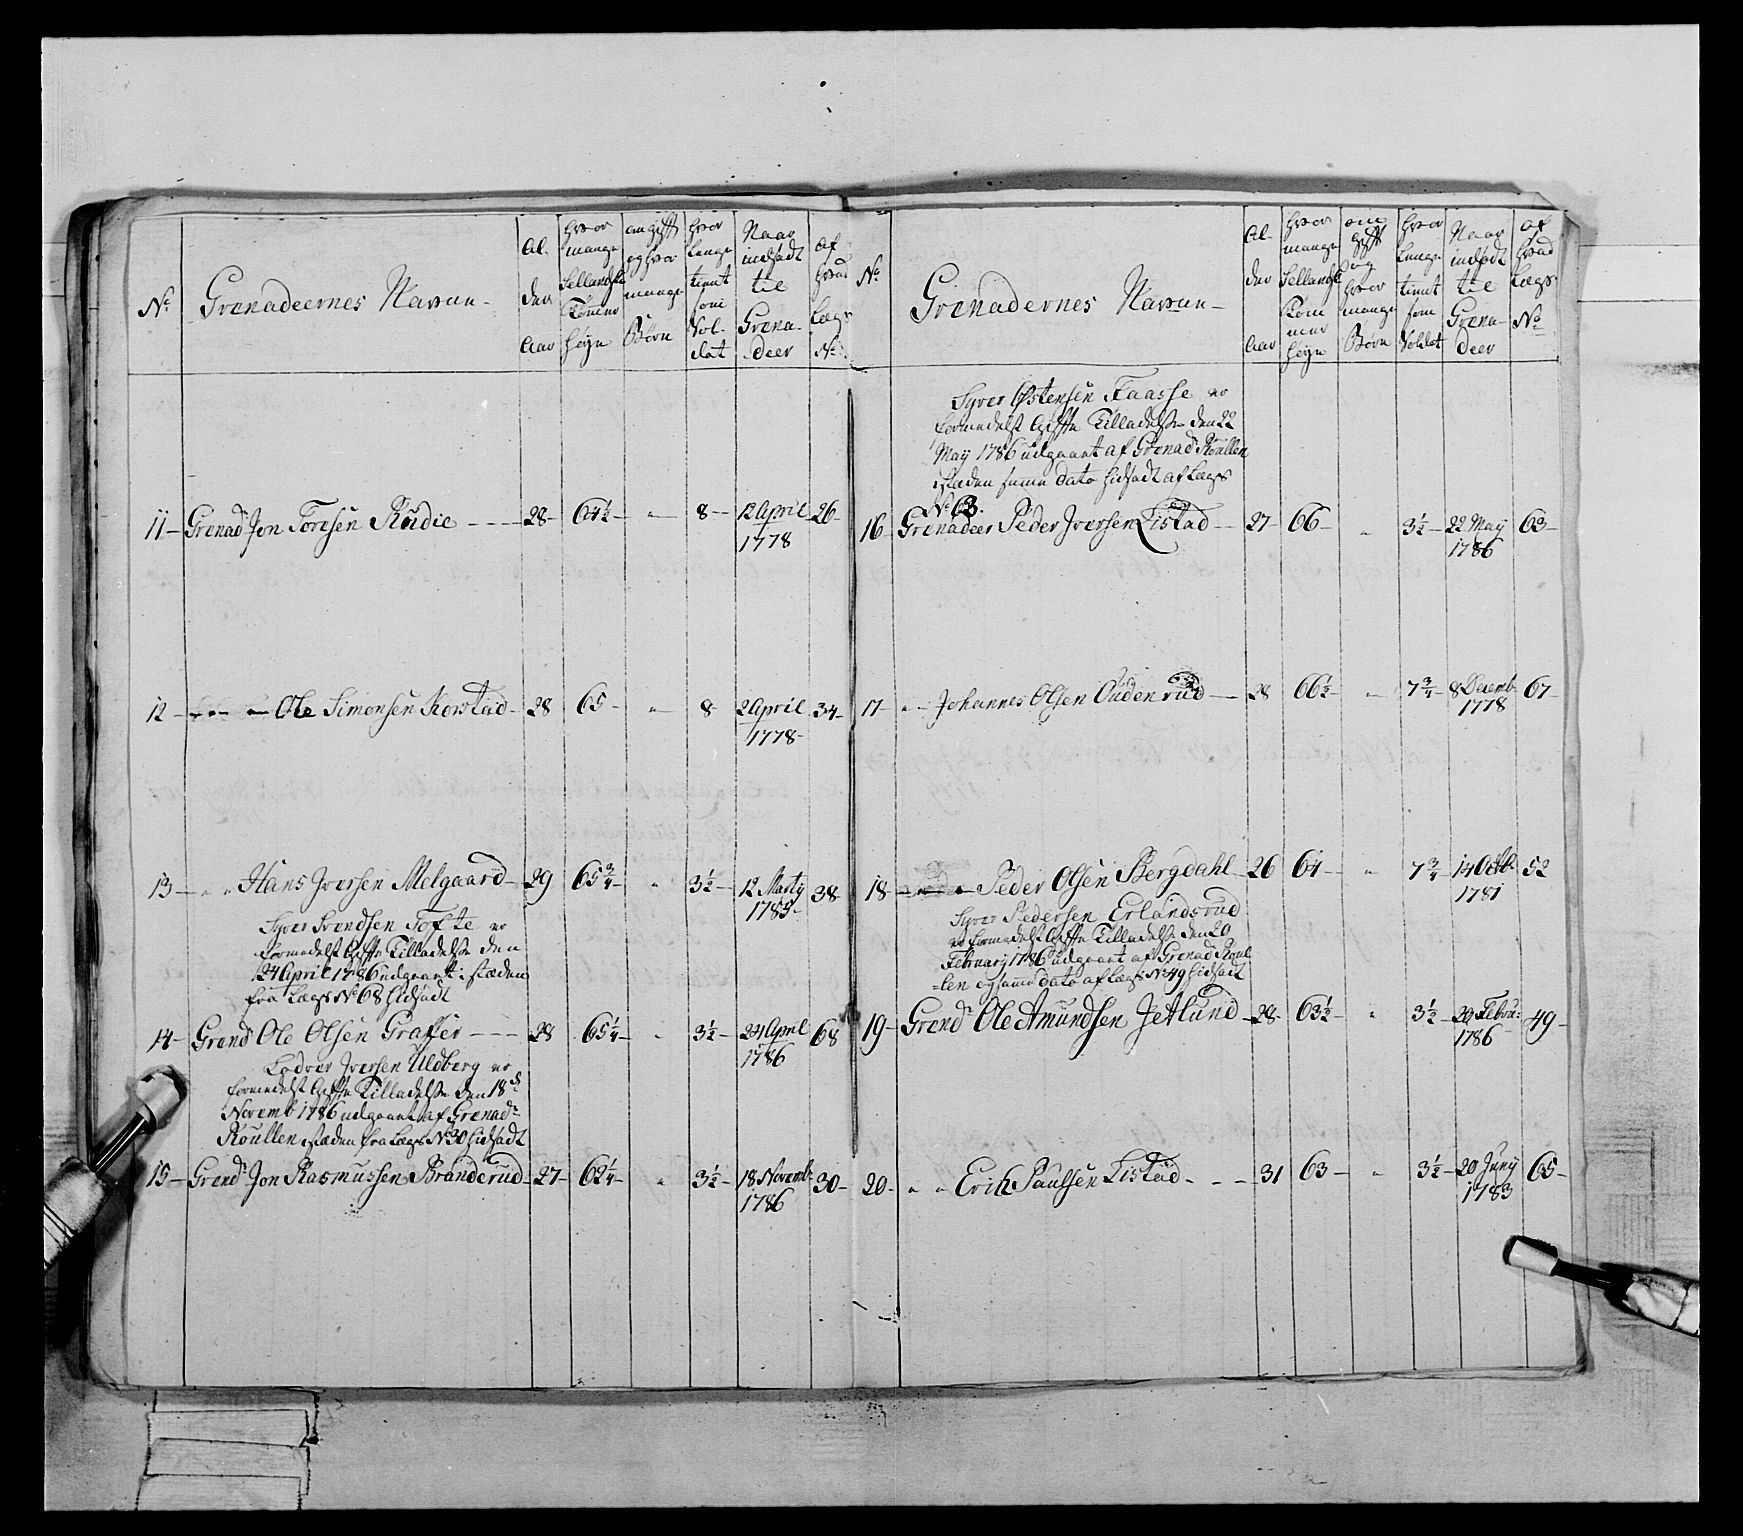 No
Grenadeernes Navne
Al-
der
Aar
hvor
mange
Sellandske
Tommer
høyn
om gift
og hvor
mange
Børn
hvor
Længe
tient
som
Sol-
dat
Naar
indsadt
til
Grena-
deer
af
hvad
Lægs
No
11 - Grenadr Jon Toresen Rudie - - - 28 - 64½ - " - 8 - 12 April 26 -
1778
12 - Ole Simonsen Korstad - 28 65 - " - 8 - 2 April 34 -
1778 -
13 - " " Hans Joersen Melgaard - 29 65¾ - " 3½ - 12 Marty 38
1785 -
Syver Svendsen Tofte er
formedelst Gifte Tilladelse den
24 April 1786 udgaaet i stæden
fra Lægs No 68 hidsadt
14 - Grendr Ole Olsen Graffer - - - 28 65¼ - " 3½ - 24 April 68
1786
Joersen Uldberg er
formedelst Gifte Tilladelse den 18de
Novemb 1786 udgaaet af Grenadr
Roullen i stæden fra Lægs No 30 hidsadt
15 - Grendr Jon Rasmussen Branderud - 27 - 62¼ - " 3½ - 18 Novemb 30 -
1786
No
Grenadernes Navne -
Al-
der
Aar
hvor
mange
Sellandske
Tom
mer
høyn
om
gift
og
hvor
mange
Børn
hvor
Længe
tient
som
Soldat
Naar
indsadt
til
Grena-
deer
af
hvad
Lægs
No
Syver Østensen Faasse er
formedelst Gifte Tilladelse den 22
May 1786 udgaaet af Grenadr Roullen
i stæden samme dato hidsadt af Lægs
No 63.
16 - Grenadeer Peder Joersen Listad - 27 - 66 - " 3½ - 22 May 63 -
1786
17 - " - Johannes Olsen Oudenrud - 28 66½ - " - 7¾ - 8 Decemb 67 -
1778
18 - Peder Olsen Bergdahl - 26 64 - " 7¾ - 14 Octb 52
1781
Syver Pedersen Erlandsrud
er formedelst Gifte Tilladelse den 20
February 1786 udgaaet af Grenad Roul
-len og samme dato af Lægs No 49 hidsadt
19 - Grendr Ole Amundsen Jetlund - 28 - 63½ - " 3½ - 20 Febru: 49 -
1786
20 - " " Erich Paulsen Listad - - - 31 63 - " 3½ - 20 Juny 65 -
1783